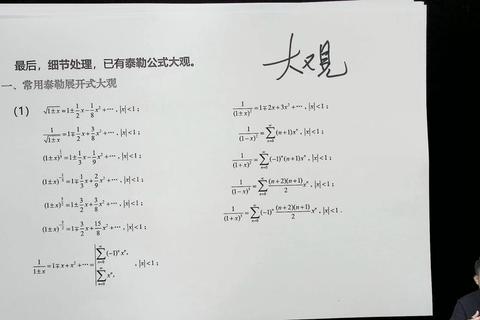 最后，细节处理，已有泰勒公式大观。
大观
一、常用泰勒展开式大观
(1) √(1±x) = 1 ± 1/2 x − 1/8 x² + ⋯, |x| < 1;
1/√(1±x) = 1 ∓ 1/2 x + 3/8 x² + ⋯, |x| < 1;
(1±x)^(1/3) = 1 ± 1/3 x − 1/9 x² + ⋯, |x| < 1;
(1±x)^(-1/3) = 1 ∓ 1/3 x + 2/9 x² + ⋯, |x| < 1;
(1±x)^(3/2) = 1 ± 3/2 x + 3/8 x² + ⋯, |x| < 1;
(1±x)^(-3/2) = 1 ∓ 3/2 x + 15/8 x² + ⋯, |x| < 1;
1/(1±x) = 1 ∓ x + x² + ⋯ = { ∑_{n=0}^{∞} (−1)ⁿ xⁿ, ∑_{n=0}^{∞} xⁿ, |x| < 1;
1/(1±x)² = 1 ∓ 2x + 3x² + ⋯, |x| < 1;
1/(1−x)² = ∑_{n=0}^{∞} (n+1)xⁿ, |x| < 1;
1/(1+x)² = ∑_{n=0}^{∞} (−1)ⁿ (n+1)xⁿ, |x| < 1;
1/(1−x)³ = ∑_{n=0}^{∞} (n+2)(n+1)/2 xⁿ, |x| < 1;
1/(1+x)³ = ∑_{n=0}^{∞} (−1)ⁿ (n+2)(n+1)/2 xⁿ, |x| < 1.